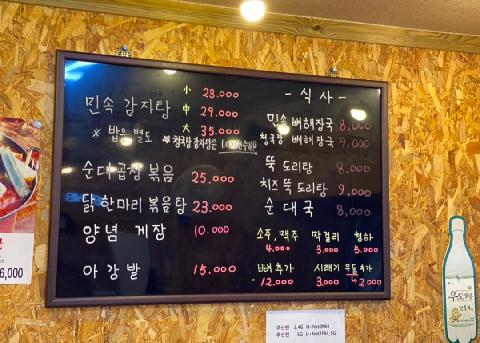 민속 감자탕
小 23.000
中 29.000
大 35.000
※ 밥은 별도
순대곱창 볶음 25.000
닭한마리 볶음탕 23.000
양념 게장 10.000
아강발 15.000
- 식사 -
민속 뼈해장국 8,000
청국장 뼈해장국 9,000
뚝 도리탕 8,000
치즈 뚝 도리탕 9,000
순대국 8,000
소주, 맥주 4.000
막걸리 3.000
청하 5.000
뼈 추가 12.000
시래기 3.000
우동 추가 2.000
6,000